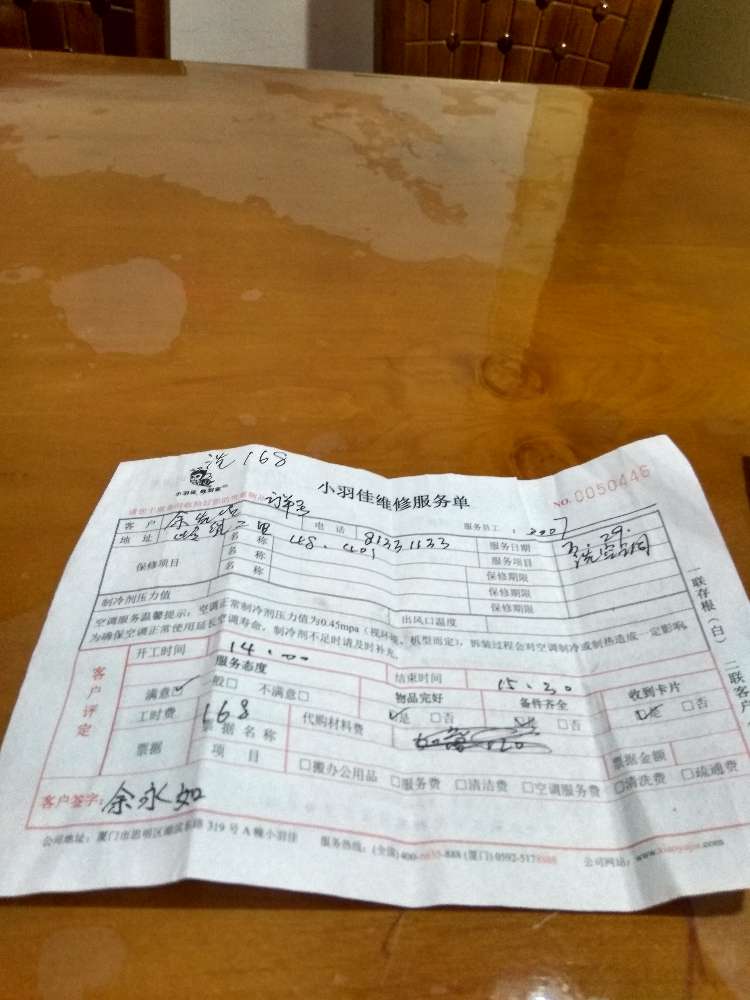 洗 168
小羽佳维修服务单
NO. 0050446
客户 电话 8133 1133 服务员工：
地址 服务日期 29
保修项目 名称 服务项目 洗空调
名称 保修期限
名称 保修期限
保修期限
制冷剂压力值 出风口温度
空调服务温馨提示：空调正常制冷剂压力值为0.45mpa（视环境、机型而定），拆装过程会对空调制冷或制热造成一定影响，
为确保空调正常使用延长空调寿命，制冷剂不足时请及时补充。
一联存根（白） 二联客户
客户评定
开工时间 14.00 结束时间 15.30
服务态度 物品完好 备件齐全 收到卡片
满意☑ 一般□ 不满意□ ☑是 □否 ☑是 □否 ☑是 □否
工时费 168 代购材料费
票据 票据名称 票据金额
项目 □搬办公用品 □服务费 □清洁费 □空调服务费 □清洗费 □疏通费
客户签字：余永如
公司地址：厦门市思明区 319号A幢小羽佳 服务热线：(全国)400 -888 (厦门)0592-5178 公司网站：